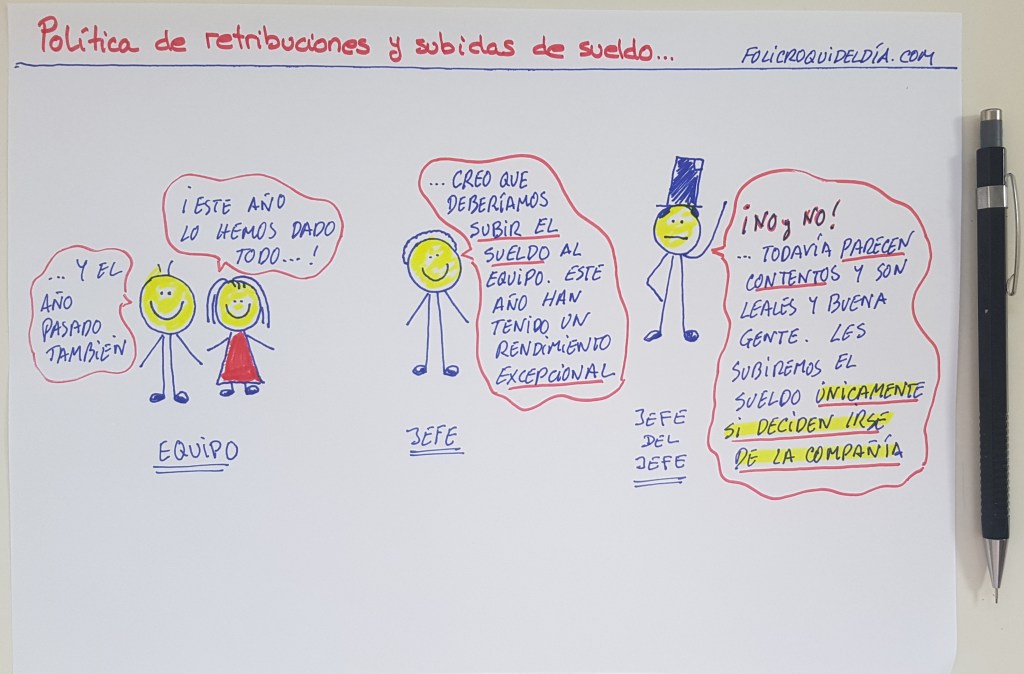 Política de retribuciones y subidas de sueldo...
FOLICROQUIDELDÍA.COM
... Y EL
AÑO
PASADO
TAMBIÉN
¡ESTE AÑO
LO HEMOS DADO
TODO...!
EQUIPO
... CREO QUE
DEBERÍAMOS
SUBIR EL
SUELDO AL
EQUIPO. ESTE
AÑO HAN
TENIDO UN
RENDIMIENTO
EXCEPCIONAL
JEFE
¡NO y NO!
... TODAVÍA PARECEN
CONTENTOS Y SON
LEALES Y BUENA
GENTE. LES
SUBIREMOS EL
SUELDO ÚNICAMENTE
SI DECIDEN IRSE
DE LA COMPAÑÍA
JEFE
DEL
JEFE